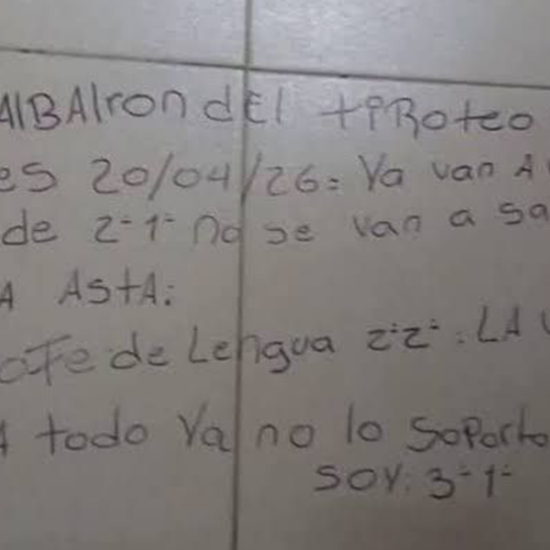 AlBAlron dEl tiRoteo
es 20/04/26: Ya van A
de 2-1- no se van a sa
A AStA:
oFe de Lengua 2-2-: LA
A todo Ya no lo Soporto
SOY: 3-1-